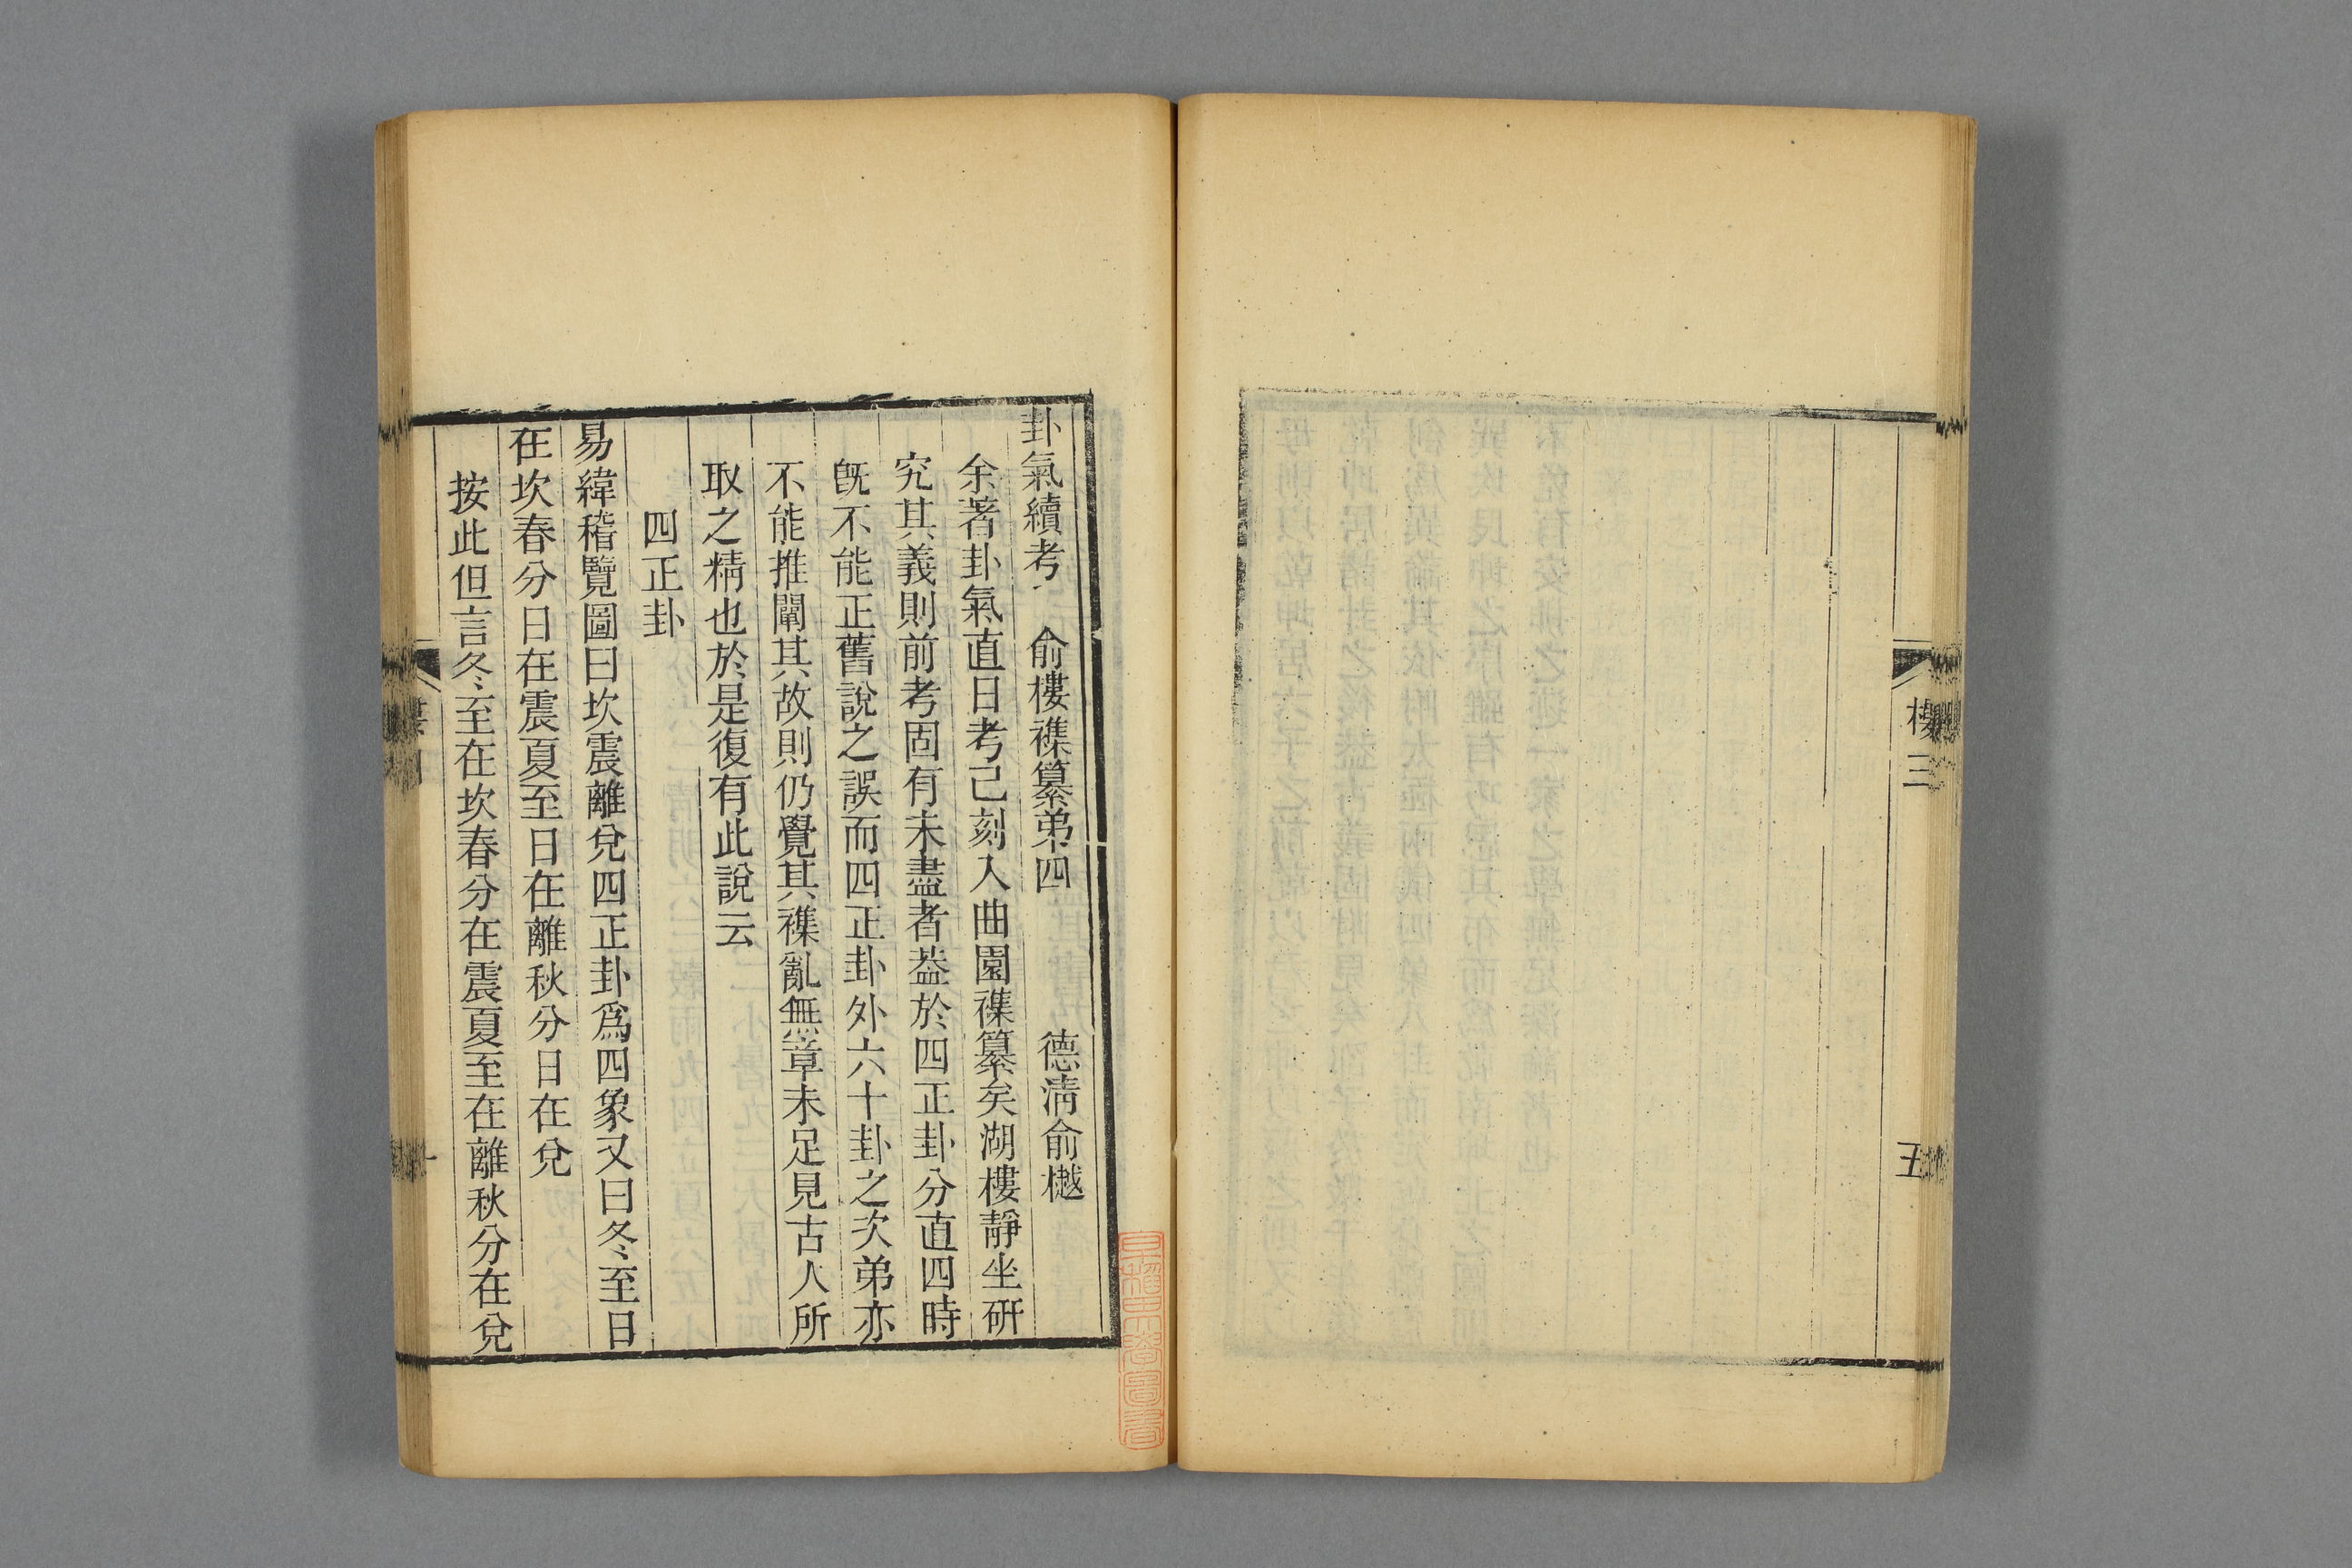 樓三
五
卦氣續考　俞樓襍纂弟四　德淸俞樾
余著卦氣直日考已刻入曲園襍纂矣湖樓靜坐硏
究其義則前考固有未盡者葢於四正卦分直四時
旣不能正舊說之誤而四正卦外六十卦之次弟亦
不能推闡其故則仍覺其襍亂無章未足見古人所
取之精也於是復有此說云
四正卦
易緯稽覽圖曰坎震離兌四正卦爲四象又曰冬至日
在坎春分日在震夏至日在離秋分日在兌
按此但言冬至在坎春分在震夏至在離秋分在兌